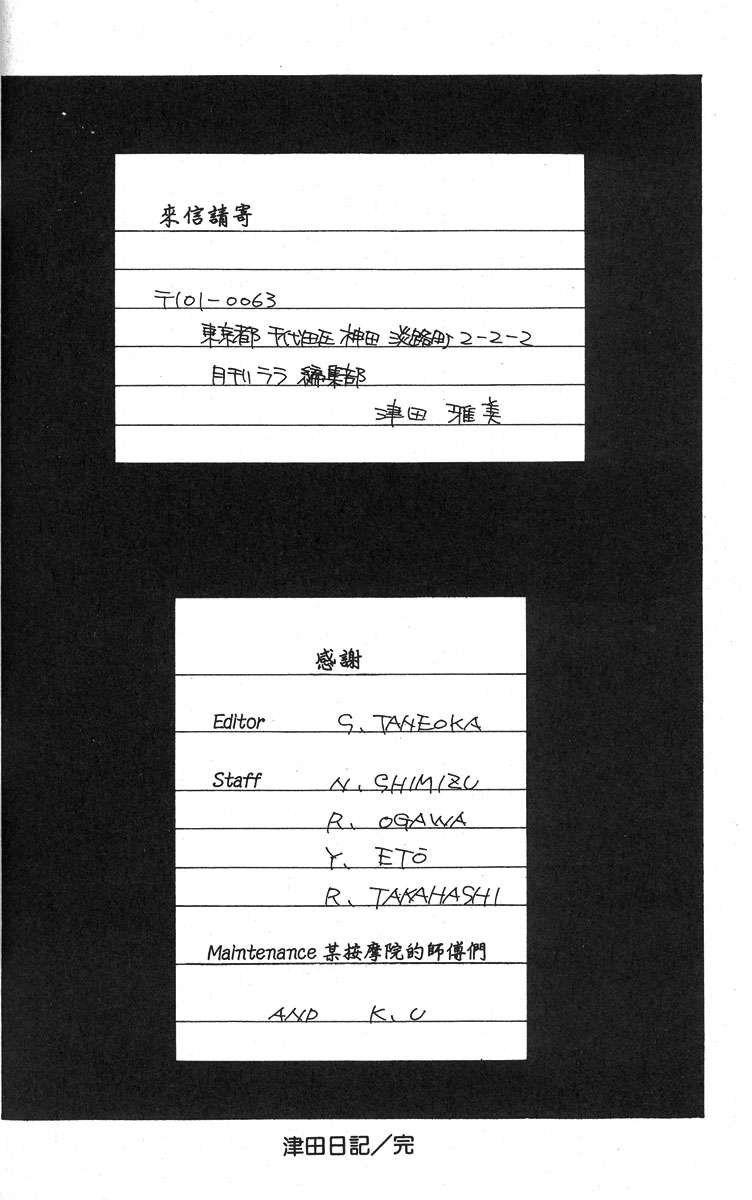 來信請寄
〒101-0063
東京都 千代田区 神田 淡路町 2-2-2
月刊ララ 編集部
津田 雅美
感謝
Editor S. TANEOKA
Staff N. SHIMIZU
R. OGAWA
Y. ETŌ
R. TAKAHASHI
Maintenance 某按摩院的師傅們
AND K. U
津田日記／完